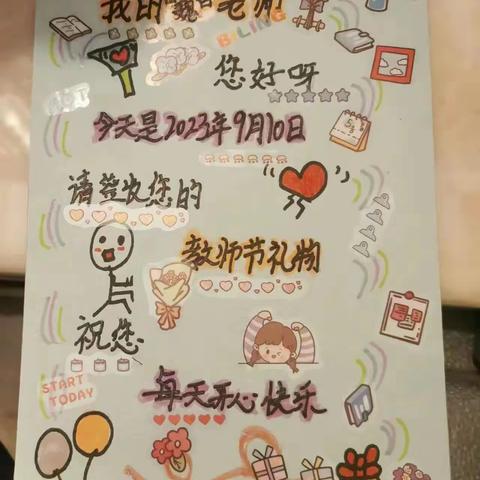 我的魏老师
BLING
您好呀
今天是2023年9月10日
请签收您的
教师节礼物
祝您
START
TODAY
每天开心快乐